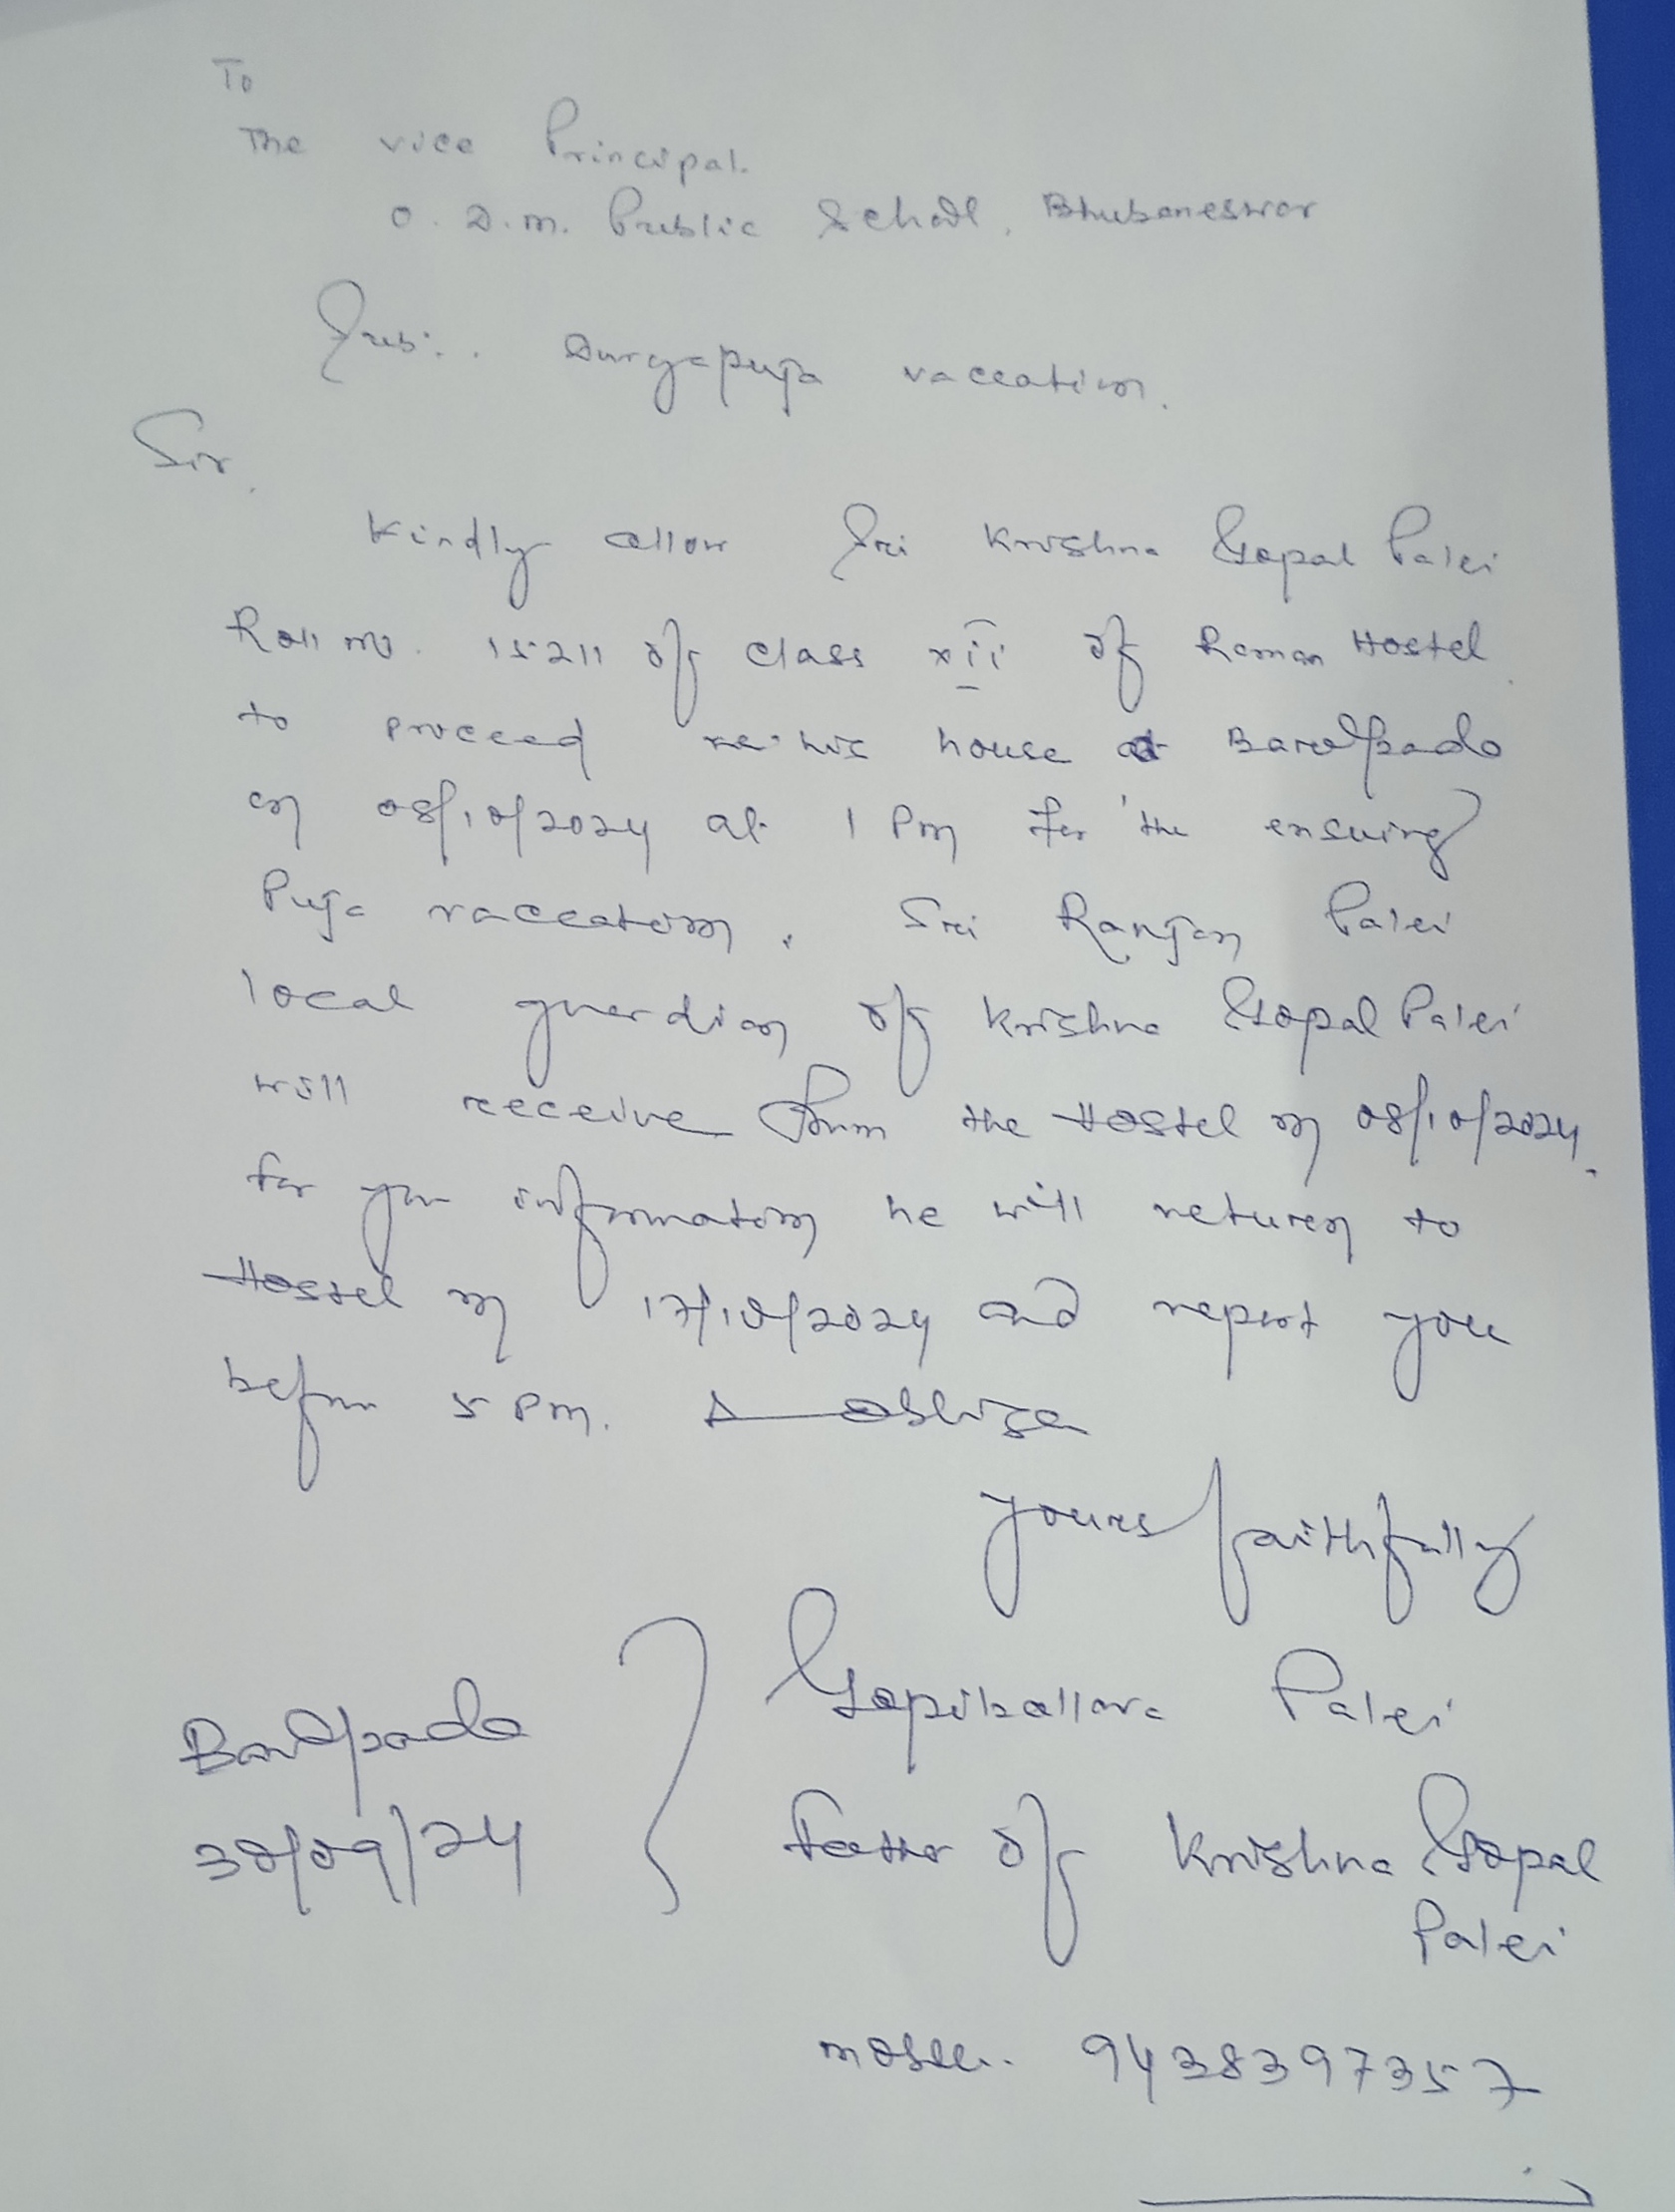 To
The vice Principal.
O. D.M. Public School, Bhubaneswar
Sub:. Durgapuja vaccation.
Sir,
Kindly allow Sri Krishna Gopal Palei
Roll no. 15211 of class XII of Raman Hostel
to proceed his house at Baripada
on 08/10/2024 at 1 Pm for the ensuing
Puja vaccation. Sri Ranjan Palei
local guardian of Krishna Gopal Palei
will receive from the Hostel on 08/10/2024.
for your information he will return to
Hostel on 17/10/2024 and report you
before 5 Pm.
yours faithfully
Gopiballava Palei
Baripada
30/09/24
Father of Krishna Gopal
Palei
9438397357